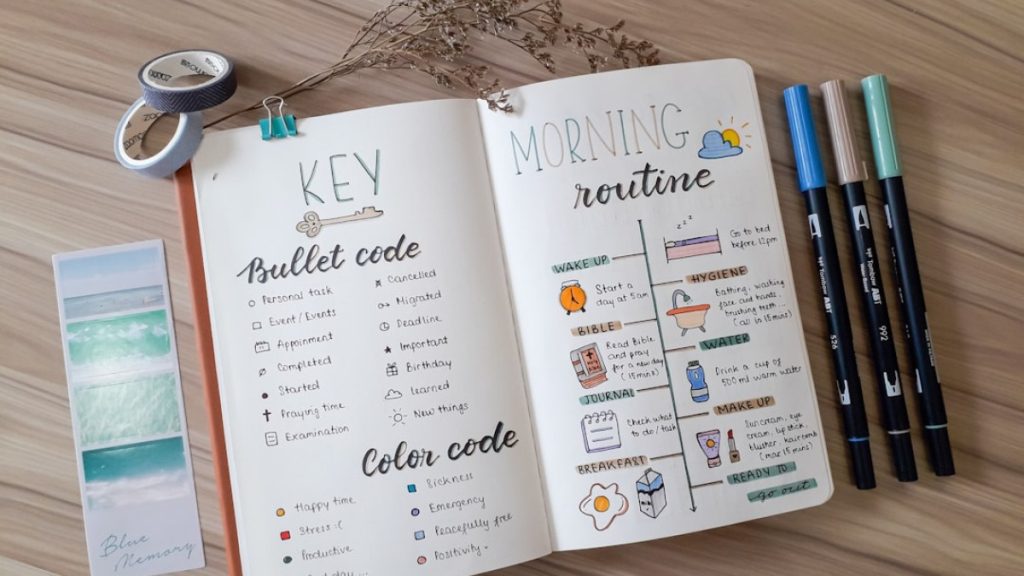 KEY
Bullet code
Personal task
Event/Events
Appoinment
Completed
Started
Praying time
Examination
Cancelled
Migrated
Deadline
Important
Birthday
Learned
New things
Color code
Happy time
Stress :(
Productive
Sickness
Emergency
Peacefully free
Positivity.
MORNING
routine
zzz
Go to bed
before 12pm
WAKE UP
Start a
day at 5am
HYGIENE
Bathing, washing
face and hands,
brushing teeth...
BIBLE
Read Bible
and pray
for a new day
(15mins)
WATER
Drink a cup of
500ml warm water
JOURNAL
Check what
to do/task
MAKE UP
Suncream, eye
cream, lipstick,
blusher, haircomb
(max 15mins)
BREAKFAST
READY TO
go out
Blue
Memory
992